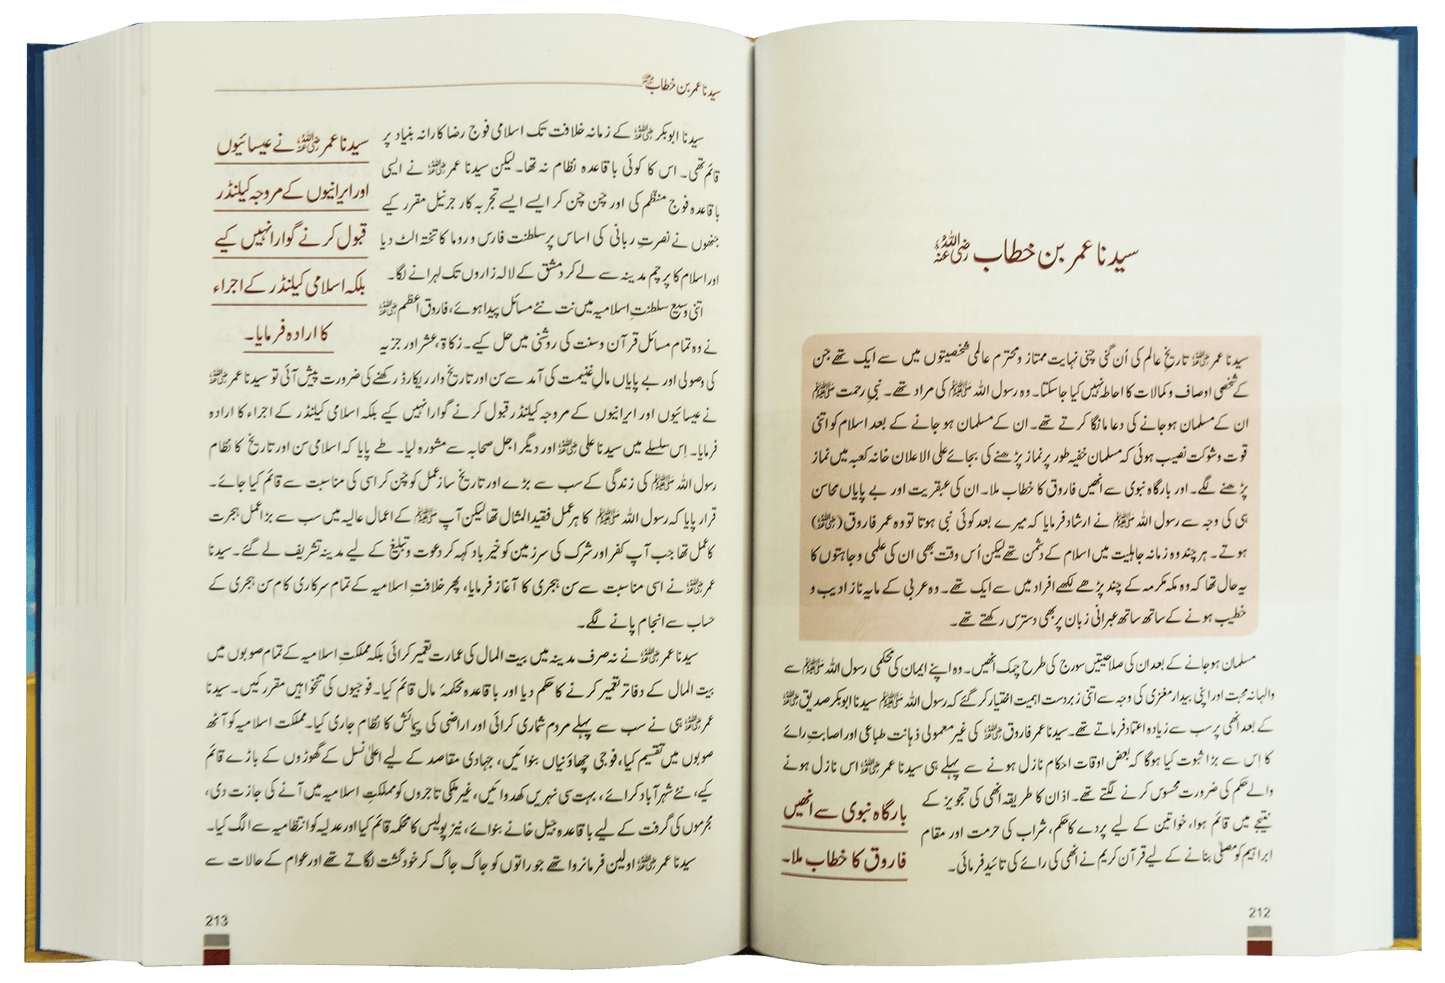 سیدنا عمر بن خطاب رضی اللہ عنہ
سیدنا عمر رضی اللہ عنہ تاریخِ عالم کی اُن گنی چنی نہایت ممتاز و محترم عالمی شخصیتوں میں سے ایک تھے جن
کے شخصی اوصاف و کمالات کا احاطہ نہیں کیا جاسکتا۔ وہ رسول اللہ ﷺ کی مراد تھے۔ نبیِ رحمت ﷺ
ان کے مسلمان ہوجانے کی دعا مانگا کرتے تھے۔ ان کے مسلمان ہو جانے کے بعد اسلام کو اتنی
قوت و شوکت نصیب ہوئی کہ مسلمان خفیہ طور پر نماز پڑھنے کی بجائے علی الاعلان خانہ کعبہ میں نماز
پڑھنے لگے۔ اور بارگاہ نبوی سے انھیں فاروق کا خطاب ملا۔ ان کی عبقریت اور بے پایاں محاسن
ہی کی وجہ سے رسول اللہ ﷺ نے ارشاد فرمایا کہ میرے بعد کوئی نبی ہوتا تو وہ عمر فاروق (رضی اللہ عنہ)
ہوتے۔ ہر چند وہ زمانہ جاہلیت میں اسلام کے دشمن تھے لیکن اُس وقت بھی ان کی علمی وجاہتوں کا
یہ حال تھا کہ وہ مکہ مکرمہ کے چند پڑھے لکھے افراد میں سے ایک تھے۔ وہ عربی کے مایہ ناز ادیب و
خطیب ہونے کے ساتھ ساتھ عبرانی زبان پر بھی دسترس رکھتے تھے۔
مسلمان ہوجانے کے بعد ان کی صلاحیتیں سورج کی طرح چمک اٹھیں۔ وہ اپنے ایمان کی محکمی رسول اللہ ﷺ سے
والہانہ محبت اور اپنی بیدار مغزی کی وجہ سے اتنی زبردست اہمیت اختیار کر گئے کہ رسول اللہ ﷺ سیدنا ابوبکر صدیق رضی اللہ عنہ
کے بعد انھی پر سب سے زیادہ اعتماد فرماتے تھے۔ سیدنا عمر فاروق رضی اللہ عنہ کی غیر معمولی ذہانت طباعی اور اصابتِ رائے
کا اِس سے بڑا ثبوت کیا ہوگا کہ بعض اوقات احکام نازل ہونے سے پہلے ہی سیدنا عمر رضی اللہ عنہ اس نازل ہونے
والے حکم کی ضرورت محسوس کرنے لگتے تھے۔ اذان کا طریقہ انھی کی تجویز کے
نتیجے میں قائم ہوا، خواتین کے لیے پردے کا حکم، شراب کی حرمت اور مقام
ابراہیم کو مصلّٰی بنانے کے لیے قرآن کریم نے انھی کی رائے کی تائید فرمائی۔
بارگاہ نبوی سے انھیں
فاروق کا خطاب ملا۔
212
سیدنا عمر بن خطاب رضی اللہ عنہ
سیدنا ابوبکر رضی اللہ عنہ کے زمانہ خلافت تک اسلامی فوج رضا کارانہ بنیاد پر
قائم تھی۔ اس کا کوئی باقاعدہ نظام نہ تھا۔ لیکن سیدنا عمر رضی اللہ عنہ نے ایسی
باقاعدہ فوج منظّم کی اور چن چن کر ایسے ایسے تجربہ کار جرنیل مقرر کیے
جنھوں نے نصرتِ ربانی کی اساس پر سلطنت فارس و روما کا تختہ الٹ دیا
اور اسلام کا پرچم مدینہ سے لے کر دمشق کے لالہ زاروں تک لہرانے لگا۔
اتنی وسیع سلطنتِ اسلامیہ میں نت نئے مسائل پیدا ہوئے، فاروق اعظم رضی اللہ عنہ
نے وہ تمام مسائل قرآن و سنت کی روشنی میں حل کیے۔ زکاۃ، عشر اور جزیہ
کی وصولی اور بے پایاں مالِ غنیمت کی آمد سے سن اور تاریخ وار ریکارڈ رکھنے کی ضرورت پیش آئی تو سیدنا عمر رضی اللہ عنہ
نے عیسائیوں اور ایرانیوں کے مروجہ کیلنڈر قبول کرنے گوارا نہیں کیے بلکہ اسلامی کیلنڈر کے اجراء کا ارادہ
فرمایا۔ اِس سلسلے میں سیدنا علی رضی اللہ عنہ اور دیگر اجل صحابہ سے مشورہ لیا۔ طے پایا کہ اسلامی سن اور تاریخ کا نظام
رسول اللہ ﷺ کی زندگی کے سب سے بڑے اور تاریخ ساز عمل کو چن کر اسی کی مناسبت سے قائم کیا جائے۔
قرار پایا کہ رسول اللہ ﷺ کا ہر عمل فقید المثال تھا لیکن آپ ﷺ کے اعمال عالیہ میں سب سے بڑا عمل ہجرت
کا عمل تھا جب آپ کفر اور شرک کی سرزمین کو خیر باد کہہ کر دعوت و تبلیغ کے لیے مدینہ تشریف لے گئے۔ سیدنا
عمر رضی اللہ عنہ نے اسی مناسبت سے سن ہجری کا آغاز فرمایا، پھر خلافتِ اسلامیہ کے تمام سرکاری کام سن ہجری کے
حساب سے انجام پانے لگے۔
سیدنا عمر رضی اللہ عنہ نے نہ صرف مدینہ میں بیت المال کی عمارت تعمیر کرائی بلکہ مملکتِ اسلامیہ کے تمام صوبوں میں
بیت المال کے دفاتر تعمیر کرنے کا حکم دیا اور باقاعدہ محکمۂ مال قائم کیا۔ فوجیوں کی تنخواہیں مقرر کیں۔ سیدنا
عمر رضی اللہ عنہ ہی نے سب سے پہلے مردم شماری کرائی اور اراضی کی پیمائش کا نظام جاری کیا۔ مملکت اسلامیہ کو آٹھ
صوبوں میں تقسیم کیا، فوجی چھاؤنیاں بنوائیں، جہادی مقاصد کے لیے اعلیٰ نسل کے گھوڑوں کے باڑے قائم
کیے، نئے شہر آباد کرائے، بہت سی نہریں کھدوائیں، غیر ملکی تاجروں کو مملکتِ اسلامیہ میں آنے کی جازت دی،
مجرموں کی گرفت کے لیے باقاعدہ جیل خانے بنوائے، نیز پولیس کا محکمہ قائم کیا اور عدلیہ کو انتظامیہ سے الگ کیا۔
سیدنا عمر رضی اللہ عنہ اولین فرمانروا تھے جو راتوں کو جاگ جاگ کر خود گشت لگاتے تھے اور عوام کے حالات سے
سیدنا عمر رضی اللہ عنہ نے عیسائیوں
اور ایرانیوں کے مروجہ کیلنڈر
قبول کرنے گوارا نہیں کیے
بلکہ اسلامی کیلنڈر کے اجراء
کا ارادہ فرمایا۔
213